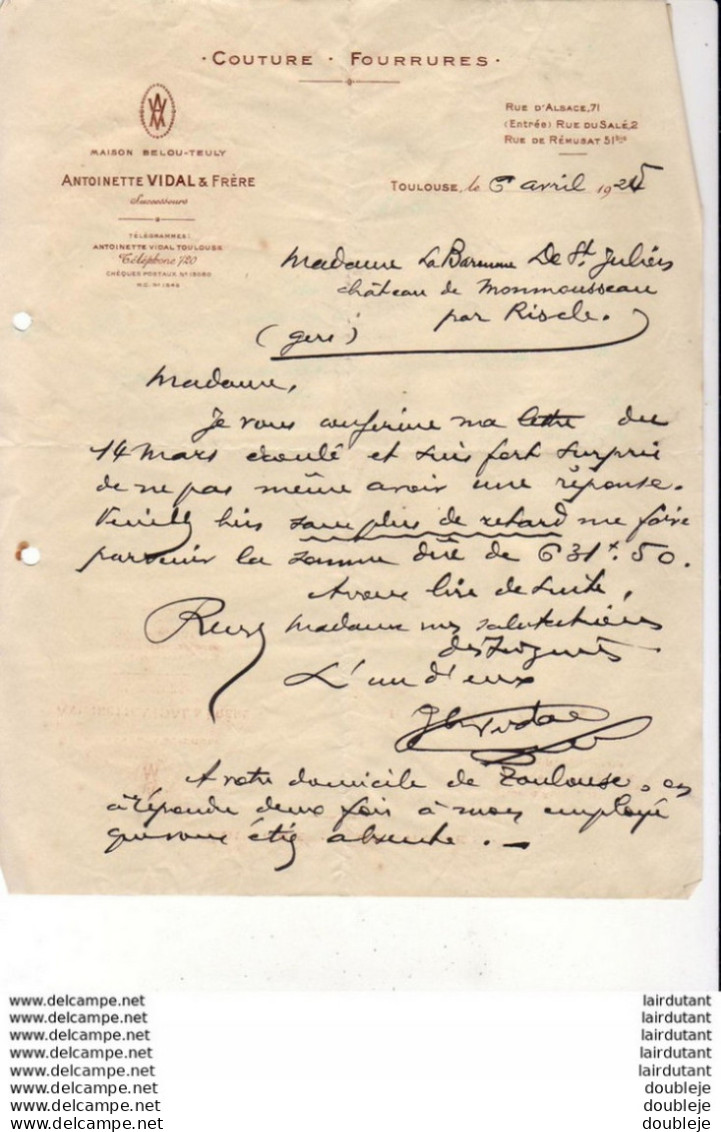 · COUTURE · FOURRURES ·
MAISON BELOU-TEULY
ANTOINETTE VIDAL & FRÈRE
Successeurs
TÉLÉGRAMMES:
ANTOINETTE VIDAL TOULOUSE
Téléphone 7.20
CHÈQUES POSTAUX Nº 15080
R.C. Nº 1545
RUE D'ALSACE, 71
(Entrée) RUE DU SALÉ, 2
RUE DE RÉMUSAT 51 bis
TOULOUSE, le 6 avril 1925
Madame La Baronne De St Julien
château de Monmousseau
par Riscle.
(gers)
Madame,
Je vous confirme ma lettre du
14 mars écoulé et suis fort surpris
de ne pas même avoir une réponse.
Veuillez bien sans plus de retard me faire
parvenir la somme due de 631f.50.
A vous lire de suite,
Recevez Madame mes salutations
distinguées
L'un d'eux
Vidal
A votre domicile de Toulouse, on
a répondu deux fois à mon employé
que vous étiez absente. —
www.delcampe.net lairdutant
www.delcampe.net lairdutant
www.delcampe.net lairdutant
www.delcampe.net lairdutant
www.delcampe.net lairdutant
www.delcampe.net doubleje
www.delcampe.net doubleje
www.delcampe.net doubleje